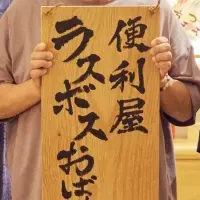 便利屋
ラスボスおば